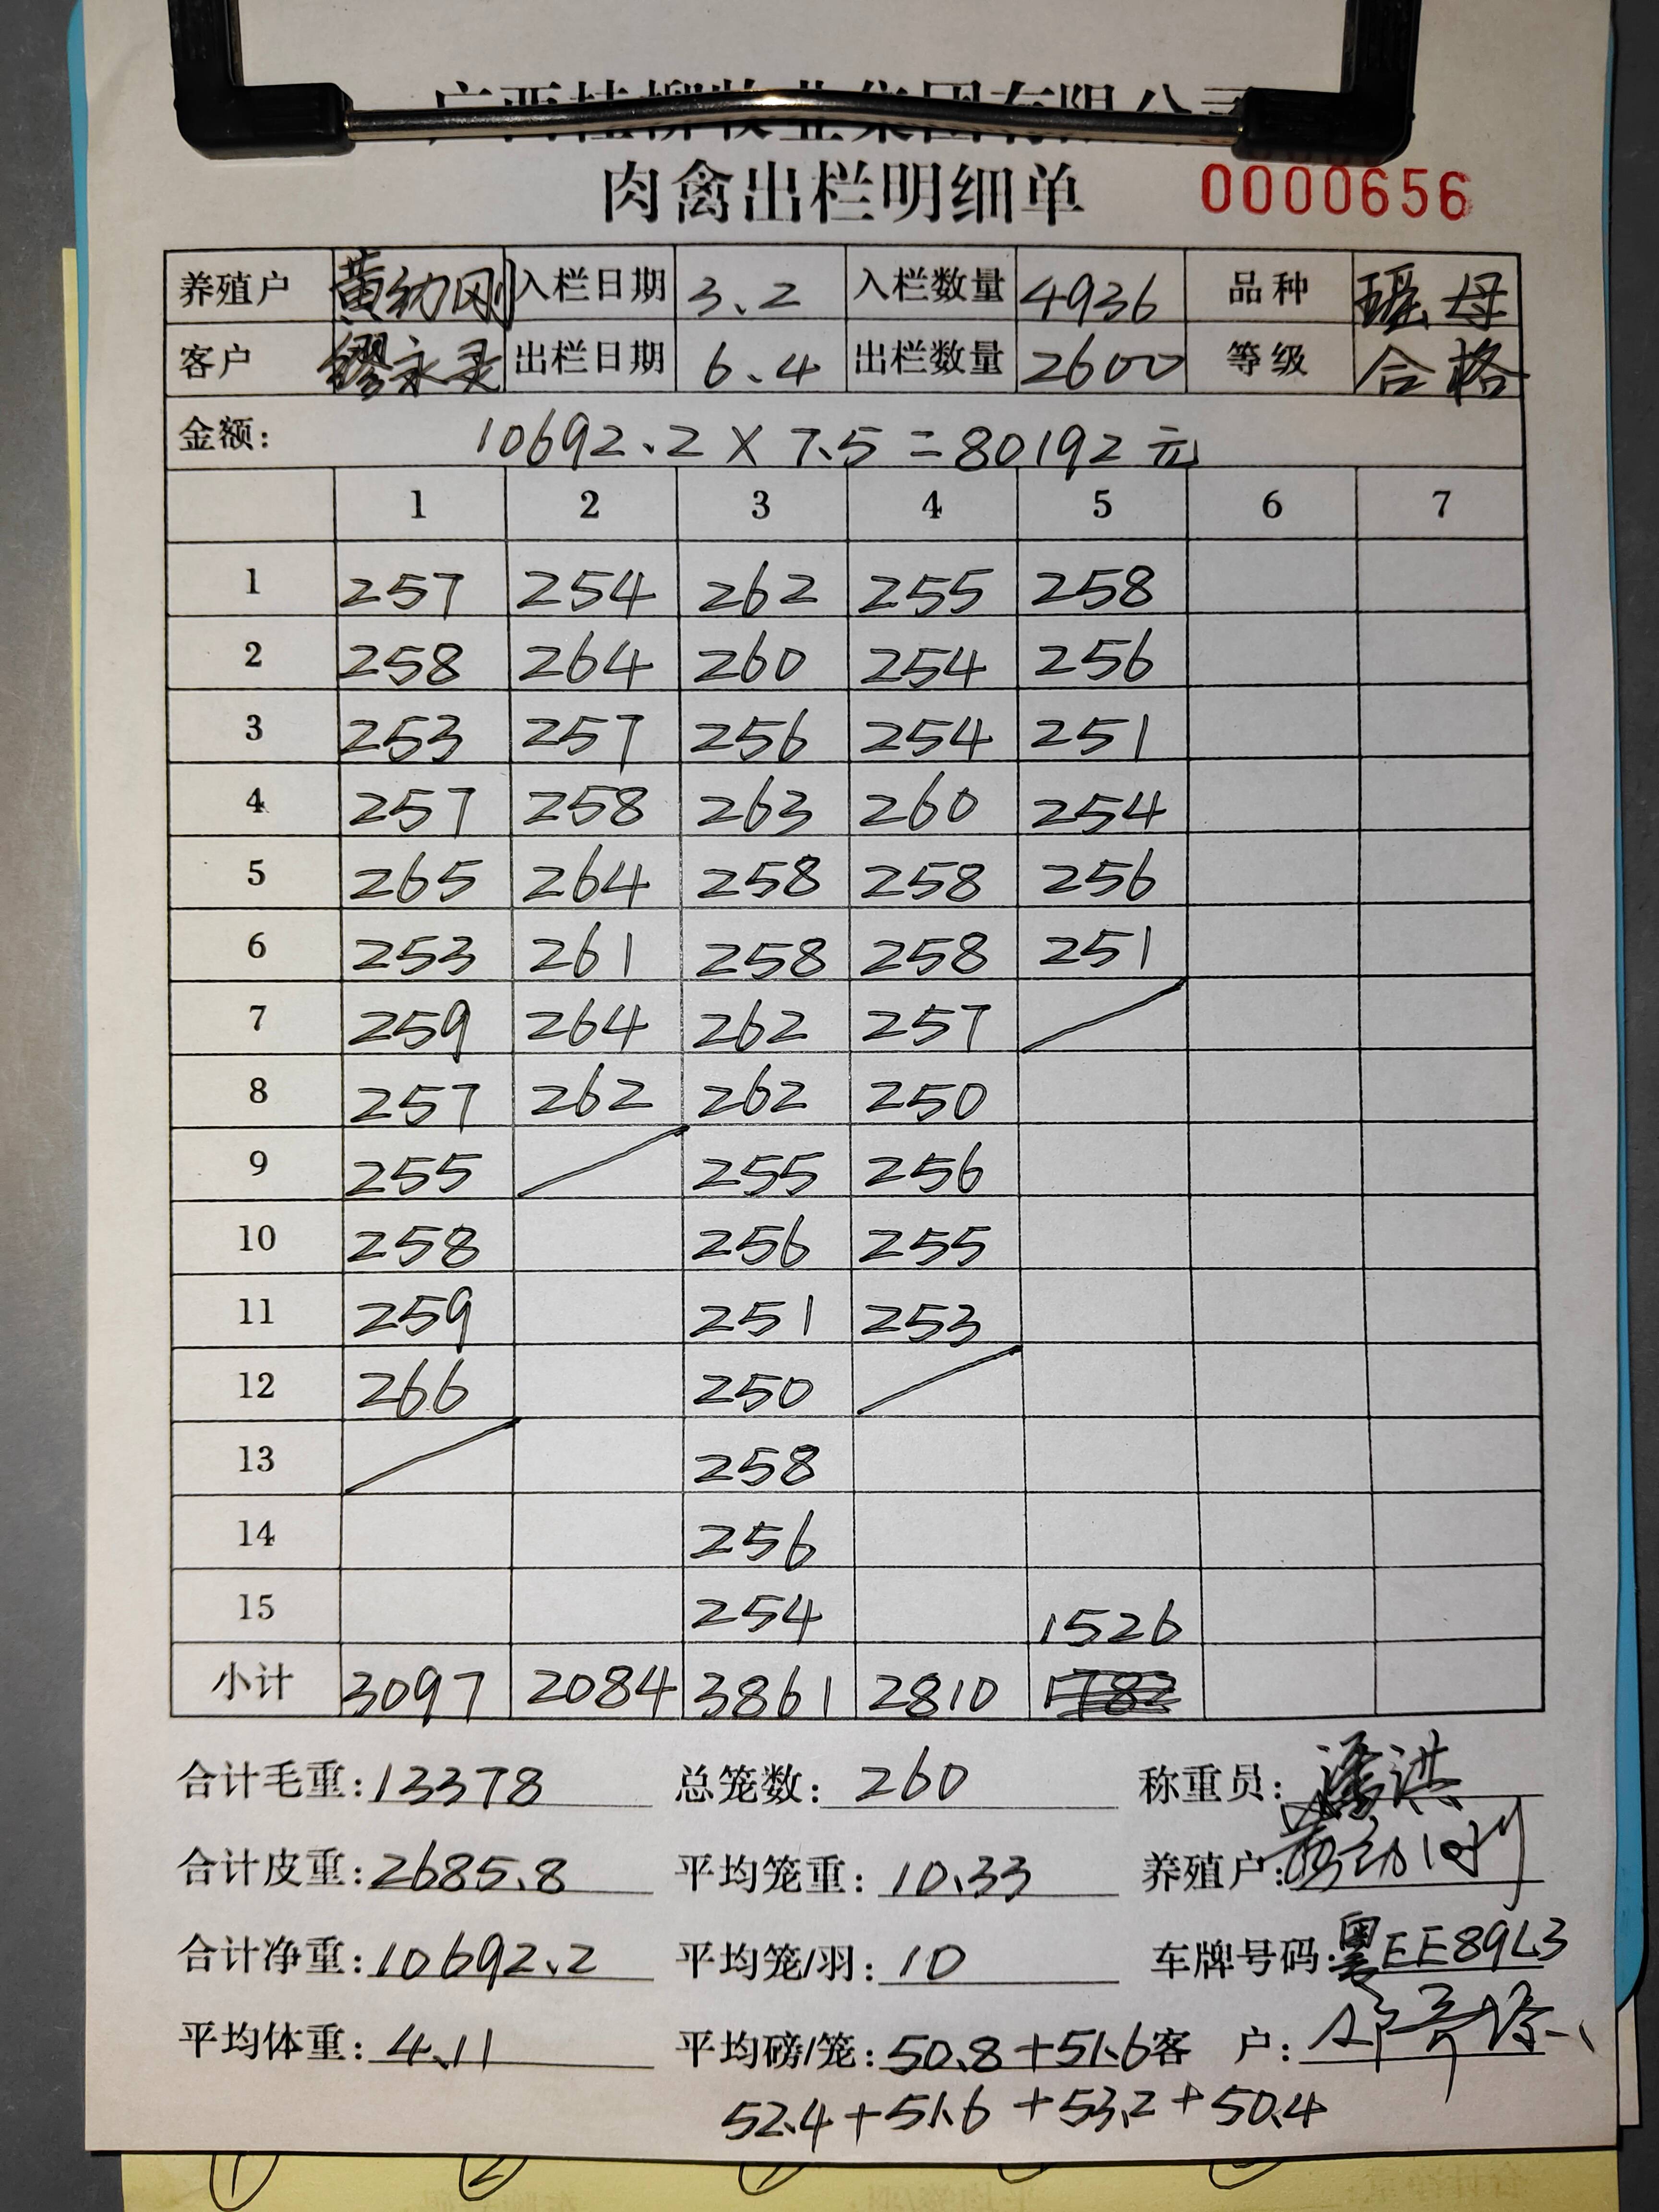 肉禽出栏明细单 0000656
养殖户 黄幼刚 入栏日期 3.2 入栏数量 4936 品种 瑶母
客户 缪永灵 出栏日期 6.4 出栏数量 2600 等级 合格
金额: 10692.2×7.5=80192元
1 2 3 4 5 6 7
1 257 254 262 255 258
2 258 264 260 254 256
3 253 257 256 254 251
4 257 258 263 260 254
5 265 264 258 258 256
6 253 261 258 258 251
7 259 264 262 257
8 257 262 262 250
9 255 255 256
10 258 256 255
11 259 251 253
12 266 250
13 258
14 256
15 254 1526
小计 3097 2084 3861 2810
合计毛重:13378 总笼数:260 称重员:潘洪
合计皮重:2685.8 平均笼重:10.33 养殖户:
合计净重:10692.2 平均笼/羽:10 车牌号码:粤EE89L3
平均体重:4.11 平均磅/笼:50.8+51.6 客 户:
52.4+51.6+53.2+50.4
① ②